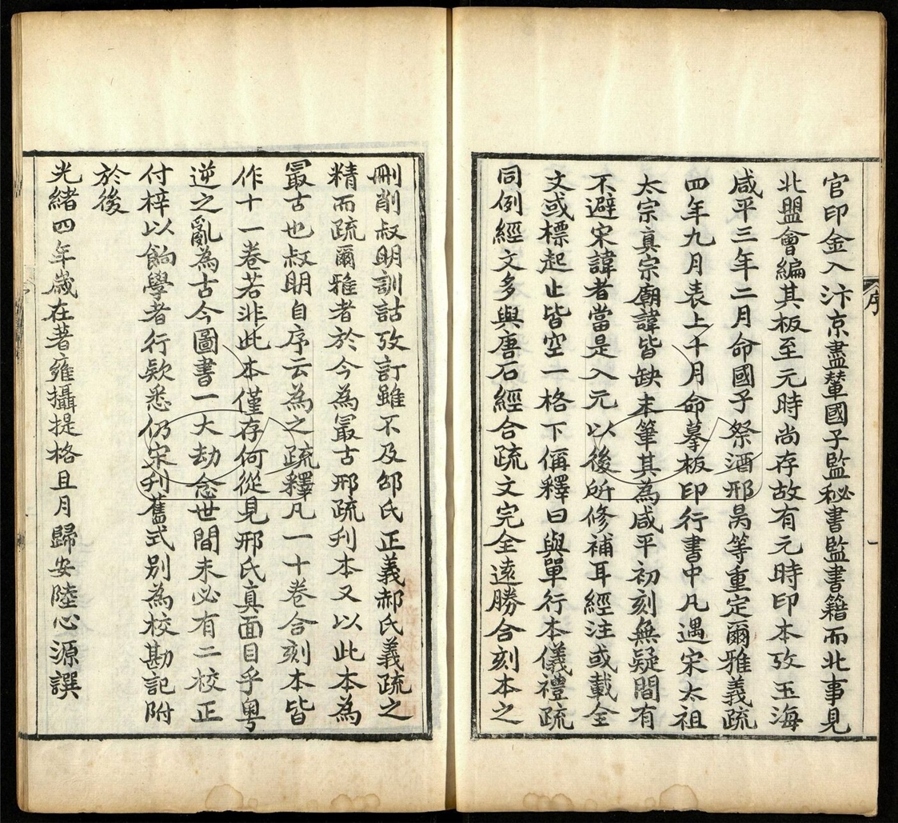 序
一
官印金入汴京盡輦國子監秘書監書籍而北事見
北盟會編其板至元時尚存故有元時印本攷玉海
咸平三年二月命國子祭酒邢昺等重定爾雅義疏
四年九月表上十月命摹板印行書中凡遇宋太祖
太宗真宗廟諱皆缺末筆其為咸平初刻無疑間有
不避宋諱者當是入元以後所修補耳經注或載全
文或標起止皆空一格下偁釋曰與單行本儀禮疏
同例經文多與唐石經合疏文完全遠勝合刻本之
刪削叔明訓詁攷訂雖不及邵氏正義郝氏義疏之
精而疏爾雅者於今為冣古邢疏刋本又以此本為
冣古也叔明自序云為之疏釋凡一十卷合刻本皆
作十一卷若非此本僅存何從見邢氏真面目乎粵
逆之亂為古今圖書一大劫念世間未必有二校正
付梓以餉學者行款悉仍宋刋舊式別為校勘記附
於後
光緒四年歲在著雍攝提格且月歸安陸心源譔